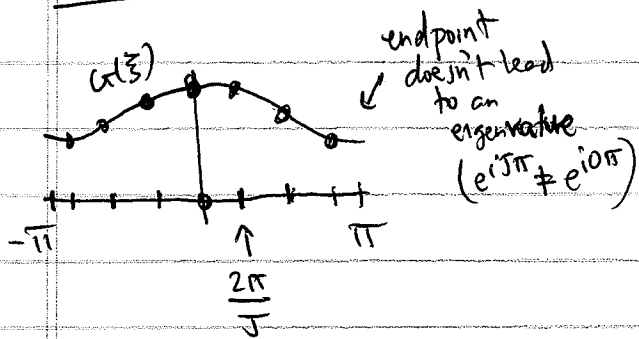 G(ξ)
endpoint
doesn't lead
to an
eigenvalue
(e^{iJπ} ≠ e^{i0π})
-π
π
2π
J